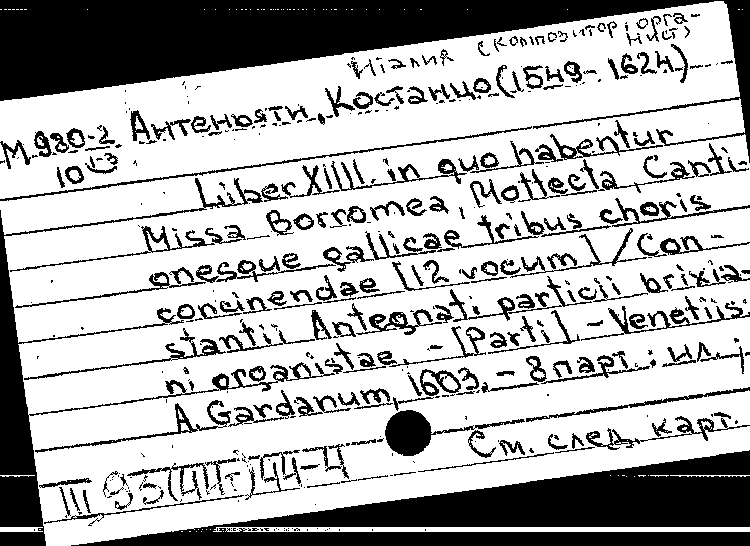 Италия (композитор, орга-
нист)
М 980-2 Антеньяти, Костанцо (1549-1624)
10 1-3
Liber XIIII. in quo habentur
Missa Borromea, Mottecta, Canti-
onesque gallicae tribus choris
concinendae [12 vocum] / Con-
stantii Antegnati particii brixia-
ni organistae. - [Parti]. - Venetiis:
A. Gardanum, 1603. - 8 парт.: ил. ;
III 93(44г)44-4 См. след. карт.